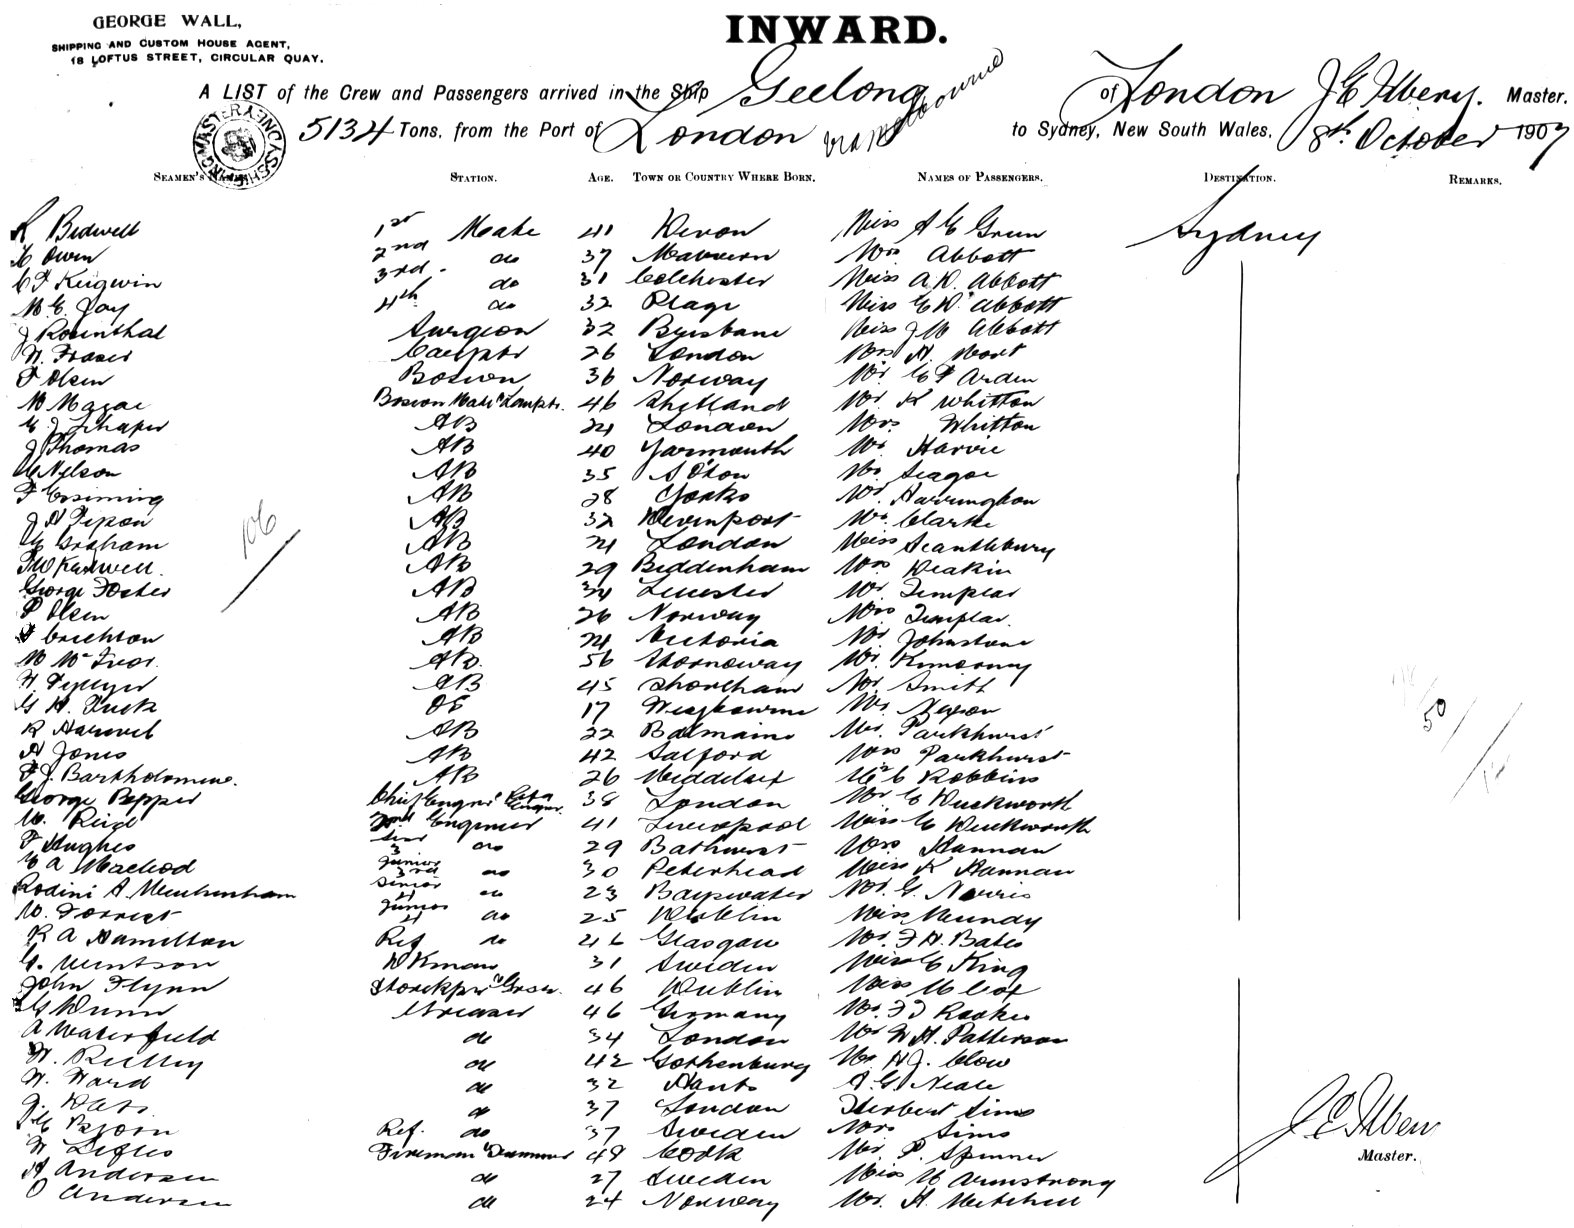 GEORGE WALL,
SHIPPING AND CUSTOM HOUSE AGENT,
18 LOFTUS STREET, CIRCULAR QUAY.
INWARD.
A LIST of the Crew and Passengers arrived in the Ship Geelong of London J E Ilbery. Master.
5134 Tons, from the Port of London via Melbourne to Sydney, New South Wales, 8th October 1907
SEAMEN'S NAMES STATION. AGE. TOWN OR COUNTRY WHERE BORN. NAMES OF PASSENGERS. DESTINATION. REMARKS.
R Bidwell 1st Mate 41 Devon Miss A E Green Sydney
Owen 2nd do 37 Malvern Mrs Abbott
C F Keigwin 3rd do 31 Colchester Miss A.D. Abbott
M. E. Jay 4th do 32 Miss E D. Abbott
J Rosenthal Surgeon 32 Brisbane Miss J M Abbott
W. Fraser 26 London Mrs A.
F Olsen Bosun 36 Norway Mr. C F Arden
M Bosun Mate & Lamptr. 46 Shetland Mr K Whitton
E J AB 21 London Mrs Whitton
J Thomas AB 40 Yarmouth Mr Harvie
C Nelson AB 35 S'ton Seagoe
F AB 28 Yorks Mr Harrington
J A Tipon AB 32 Devenport Mr. Clarke
C Graham AB 21 London Miss Scantlebury
AB 29 Biddenham Mrs Deakin
George Foster AB Leicester Mr. Templar
P Olsen AB 26 Norway Mrs Templar.
Crichton AB 21 Victoria Mr Johnstone
M McIvor. AB. 56 Stornoway Mr.
AB 45 Shoreham Mr. Smith
G H. Tuck OS 17 Mr. Nixon
R AB 22 Balmain Mr. Parkhurst
A Jones AB 42 Salford Mrs Parkhurst
F J. Bartholomew. AB 26 Middelsex C Robbins
George Pepper Chief Engnr 38 London Mr E Duckworth
W. Reid 2nd Engineer 41 Liverpool Miss E Duckworth
F Hughes Senr 3 do 29 Bathurst Mrs Hannan
E A Macleod Junior 3rd do 30 Peterhead Miss K Hannan
A. Senior 4 do 23 Bayswater Mr. G. Norris
W. Forrest Junior 4 do 25 Dublin Miss Mundy
R A Hamilton Ref do Glasgow Mr. F H. Bates
DKman 31 Sweden Miss E King
John Flynn Storekpr & Greaser. 46 Dublin Miss M Cox
G Dunn Greaser 46 Germany Mr. F J Rooke
A Waterfield do 34 London Mr W H. Patterson
W. Reilly do 42 Gothenburg Mr H J. Clow
W. Ward do 32 Hants A. G. Neale
do 37 London Herbert Sims
Bjorn Ref. do 37 Sweden Mrs Sims
Fireman & Trimmer 48 Cork Mr. P. Spinner
A Andersen do 27 Sweden Miss M Armstrong
O Andersen do 24 Norway Mr. H. Mitchell
106
50
J E Ilbery
Master.